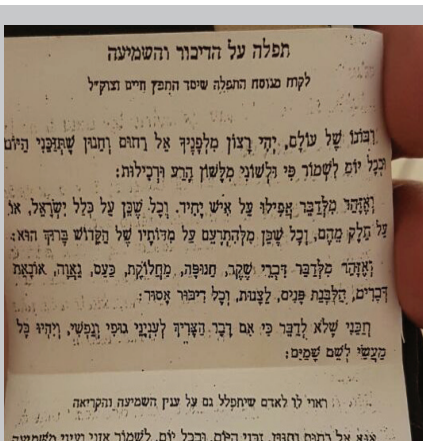 תפלה על הדיבור והשמיעה
לקוח מנוסח התפלה שיסד החפץ חיים זצוק״ל
רבונו של עולם, יהי רצון מלפניך אל רחום וחנון שתזכני היום
ובכל יום לשמור פי ולשוני מלשון הרע ורכילות:
ואזהר מלדבר אפילו על איש יחיד. וכל שכן על כלל ישראל, או
על חלק מהם, וכל שכן מלהתרעם על מדותיו של הקדוש ברוך הוא:
ואזהר מלדבר דברי שקר, חנופה, מחלוקת, כעס, גאוה, אונאת
דברים, הלבנת פנים, לצנות, וכל דיבור אסור:
תזכני שלא לדבר כי אם דבר הצריך לעניני גופי ונפשי, ויהיו כל
מעשי לשם שמים:
ראוי לו לאדם שיתפלל גם על ענין השמיעה והקריאה
אנא אל רחום וחנון, זכני היום, ובכל יום, לשמור אזני ועיני משמיעה